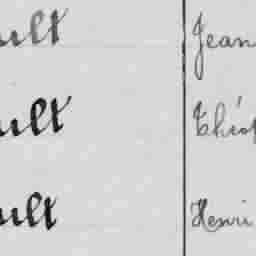 ult Jean
ult Théo
ult Henri